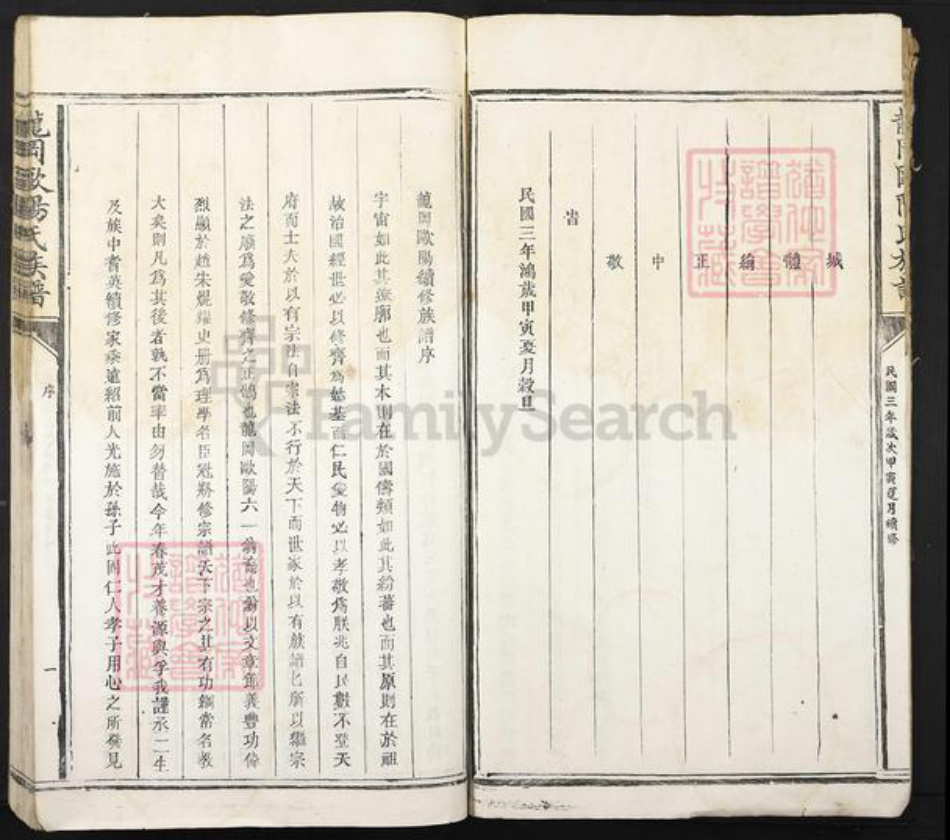 民國三年歲次甲寅夏月續修
城
體
綸
正
中
敬
省
民國三年鴻歲甲寅夏月穀旦
龍岡歐陽續修族譜序
宇宙如此其寥廓也而其本則在於國儔類如此其紛蕃也而其原則在於祖
故治國經世必以修齊為始基而仁民愛物必以孝敬為朕兆自民數不登天
府而士大於以有宗法自宗法不行於天下而世家於以有族譜匕所以繼宗
法之廢為愛敬修齊之正鵠也龍岡歐陽六一翁裔也翁以文章節義豐功偉
烈顯於趙宋焜耀史册為理學名臣冠刱修宗譜天下宗之其有功綱常名教
大矣則凡為其後者孰不當率由勿替哉今年春茂才養源與孚我謹承二生
及族中耆英續修家乘遠紹前人光施於孫子此固仁人孝子用心之所發見
龍岡歐陽氏族譜
序
一
FamilySearch